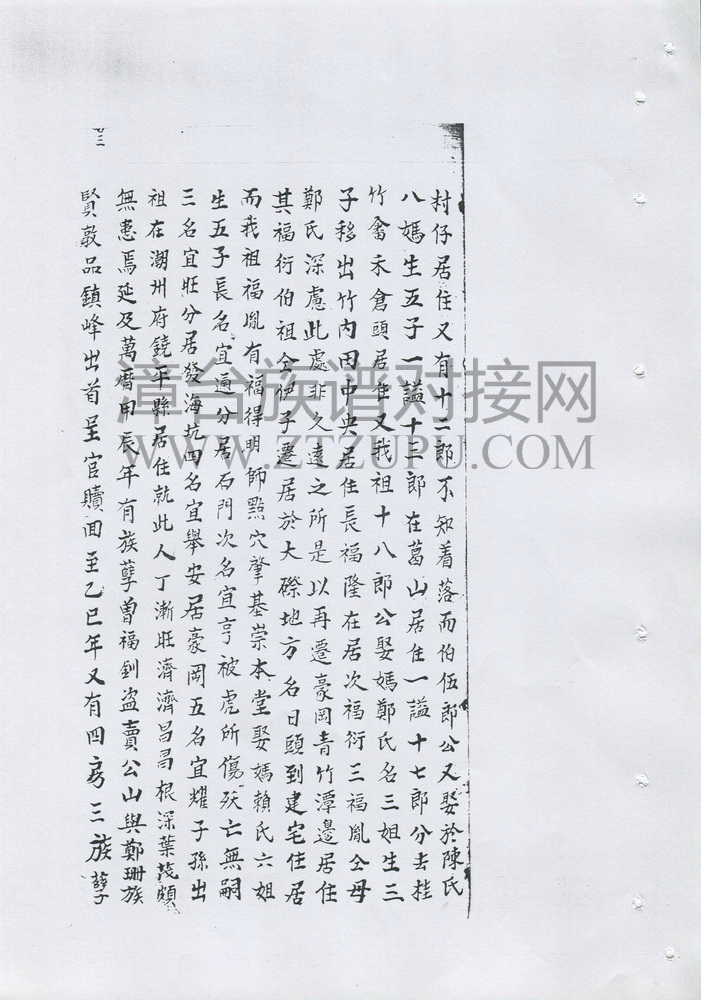 村仔居住又有十二郎不知着落而伯伍郎公又娶於陳氏
八媽生五子一謚十三郎在葛山居住一謚十七郎分去挂
竹畬禾倉頭居住又我祖十八郎公娶媽鄭氏名三姐生三
子移出竹內田中央居住長福隆在居次福衍三福胤仝母
鄭氏深慮此處非久遠之所是以再遷豪岡青竹潭邊居住
其福衍伯祖仝伊子遷居於大磜地方名日頭到建宅住居
而我祖福胤有福得明師點穴肇基崇本堂娶媽賴氏六姐
生五子長名宜遍分居石門次名宜亨被虎所傷殀亡無嗣
三名宜旺分居發海坑四名宜舉安居豪岡五名宜耀子孫出
祖在潮州府鐃平縣居住就此人丁漸旺濟濟昌昌根深葉茂頗
無恙焉延及萬曆甲辰年有族孽曾福釗盜賣公山與鄭珊族
賢敦品鎮峰出首呈官贖回至乙巳年又有四房三族孽
廿三
漳台族谱对接网
WWW.ZTZUPU.COM